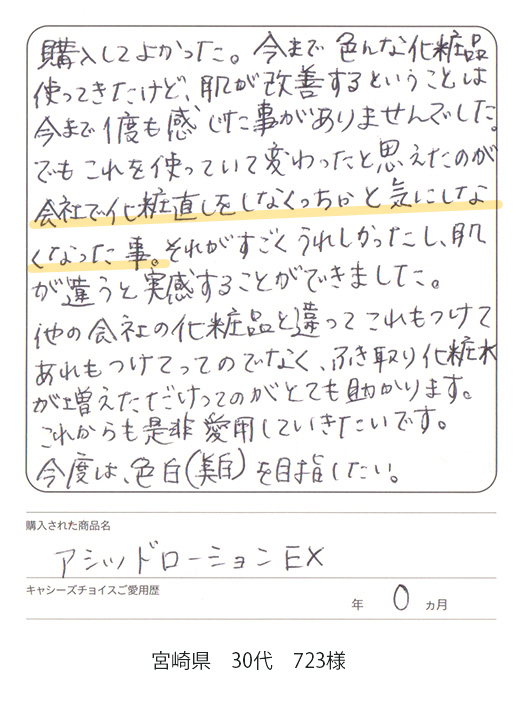 購入してよかった。今まで色んな化粧品
使ってきたけど、肌が改善するということは
今まで1度も感じた事がありませんでした。
でもこれを使っていて変わったと思えたのが
会社で化粧直しをしなくっちゃと気にしな
くなった事。それがすごくうれしかったし、肌
が違うと実感することができました。
他の会社の化粧品と違ってこれもつけて
あれもつけてってのでなく、ふき取り化粧水
が増えただけってのがとても助かります。
これからも是非愛用していきたいです。
今度は、色白(美白)を目指したい。
購入された商品名
アシッドローションEX
キャシーズチョイスご愛用歴
年 0 ヵ月
宮崎県 30代 723様